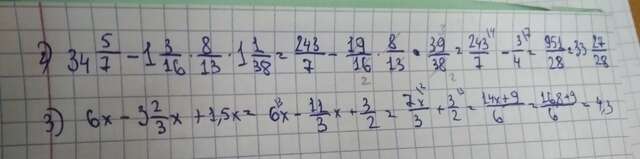 2) 34 5/7 − 1 3/16 · 8/13 · 1 1/38 = 243/7 − 19/16 · 8/13 · 39/38 = 243/7 − 3/4 = 951/28 = 33 27/28
3) 6x − 3 2/3 x + 1,5x = 6x − 11/3 x + 3/2 = 7x/3 + 3/2 = 14x+9/6 = 168+9/6 = 4,3